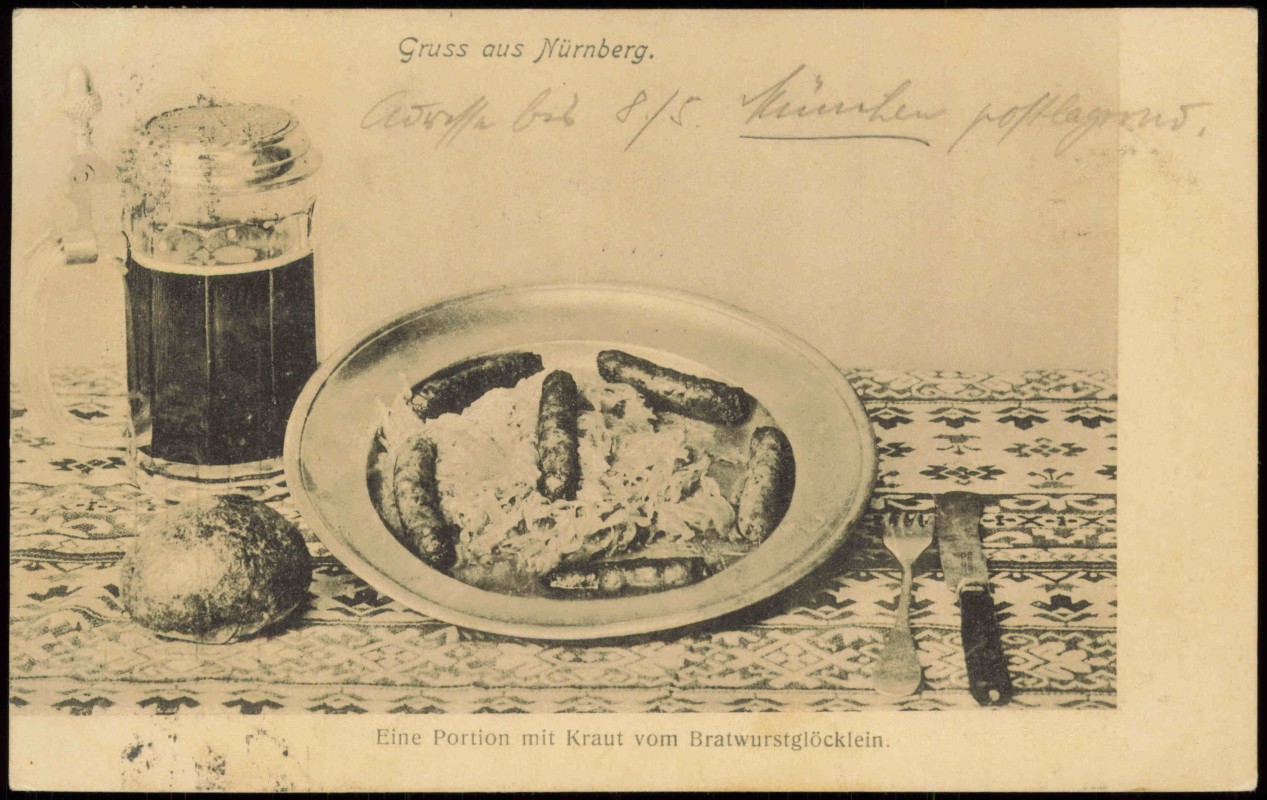 Gruss aus Nürnberg.
Adresse bis 8/5. München postlagernd.
Eine Portion mit Kraut vom Bratwurstglöcklein.